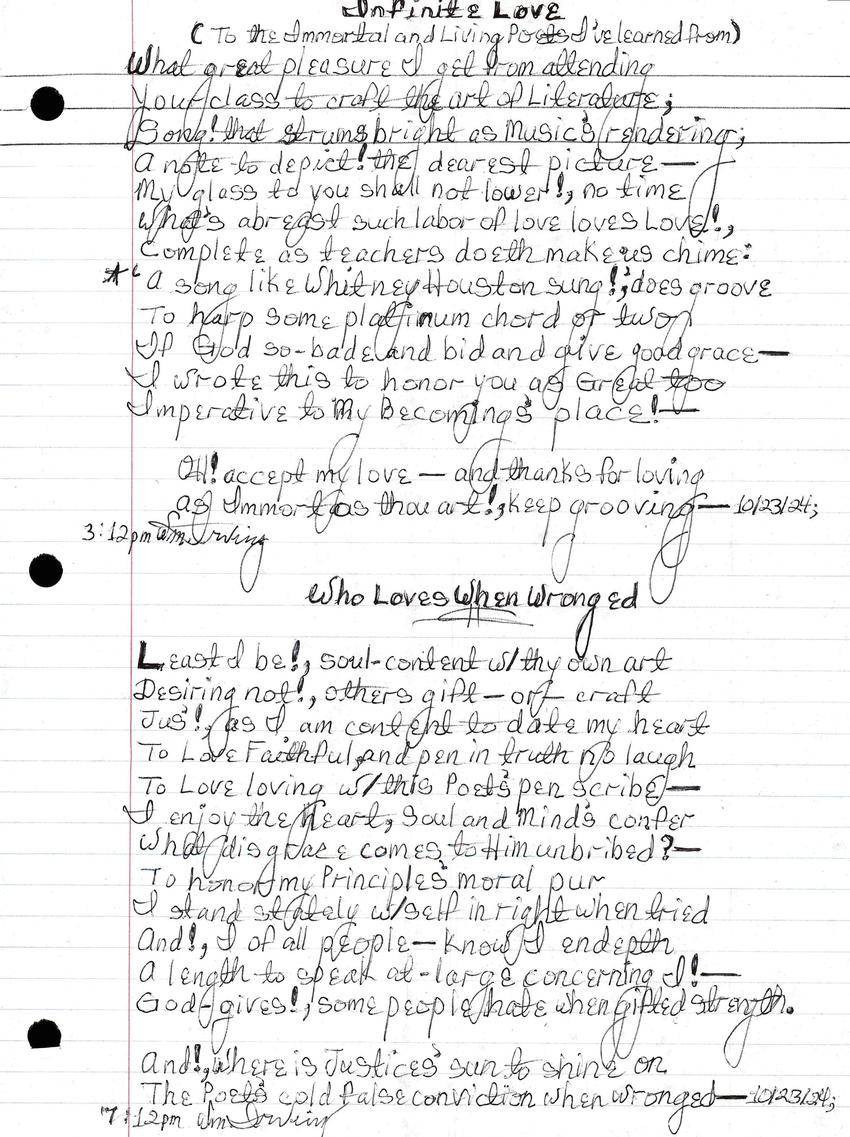 Infinite Love
( To the Immortal and Living Poets I've learned from)
What great pleasure I get from attending
Your class to craft the art of Literature;
Song! that strums bright as Music's rendering;
A note to depict! the dearest picture—
My glass to you shall not lower!, no time
What's abreast such labor of love loves Love!,
Complete as teachers doeth make us chime:
*' A song like Whitney Houston sung!', does groove
To harp some platinum chord or two
If God so-bade and bid and give good grace—
I wrote this to honor you as Great too
Imperative to My Becoming's place!—
Oh! accept my love — and thanks for loving
as Immortas thou art!, keep grooving— 10/23/24;
3:12pm Wm Irving
Who Loves When Wronged
Least I be!, soul-content w/ thy own art
Desiring not!, others gift — or craft
Jus'!, as I am content to date my heart
To Love Faithful, and pen in truth no laugh
To Love loving w/ this Poet's pen scribe—
I enjoy the Heart, Soul and Mind's confer
What disgrace comes to Him unbribed?—
To honor my Principles' moral pur
I stand stately w/ self in right when tried
And!, I of all people— know I endepth
A length to speak at-large concerning I!—
God-gives!, some people hate when gifted strength.
And!, where is Justices' sun to shine on
The Poet's cold false conviction when wronged— 10/23/24;
7:12pm Wm Irving